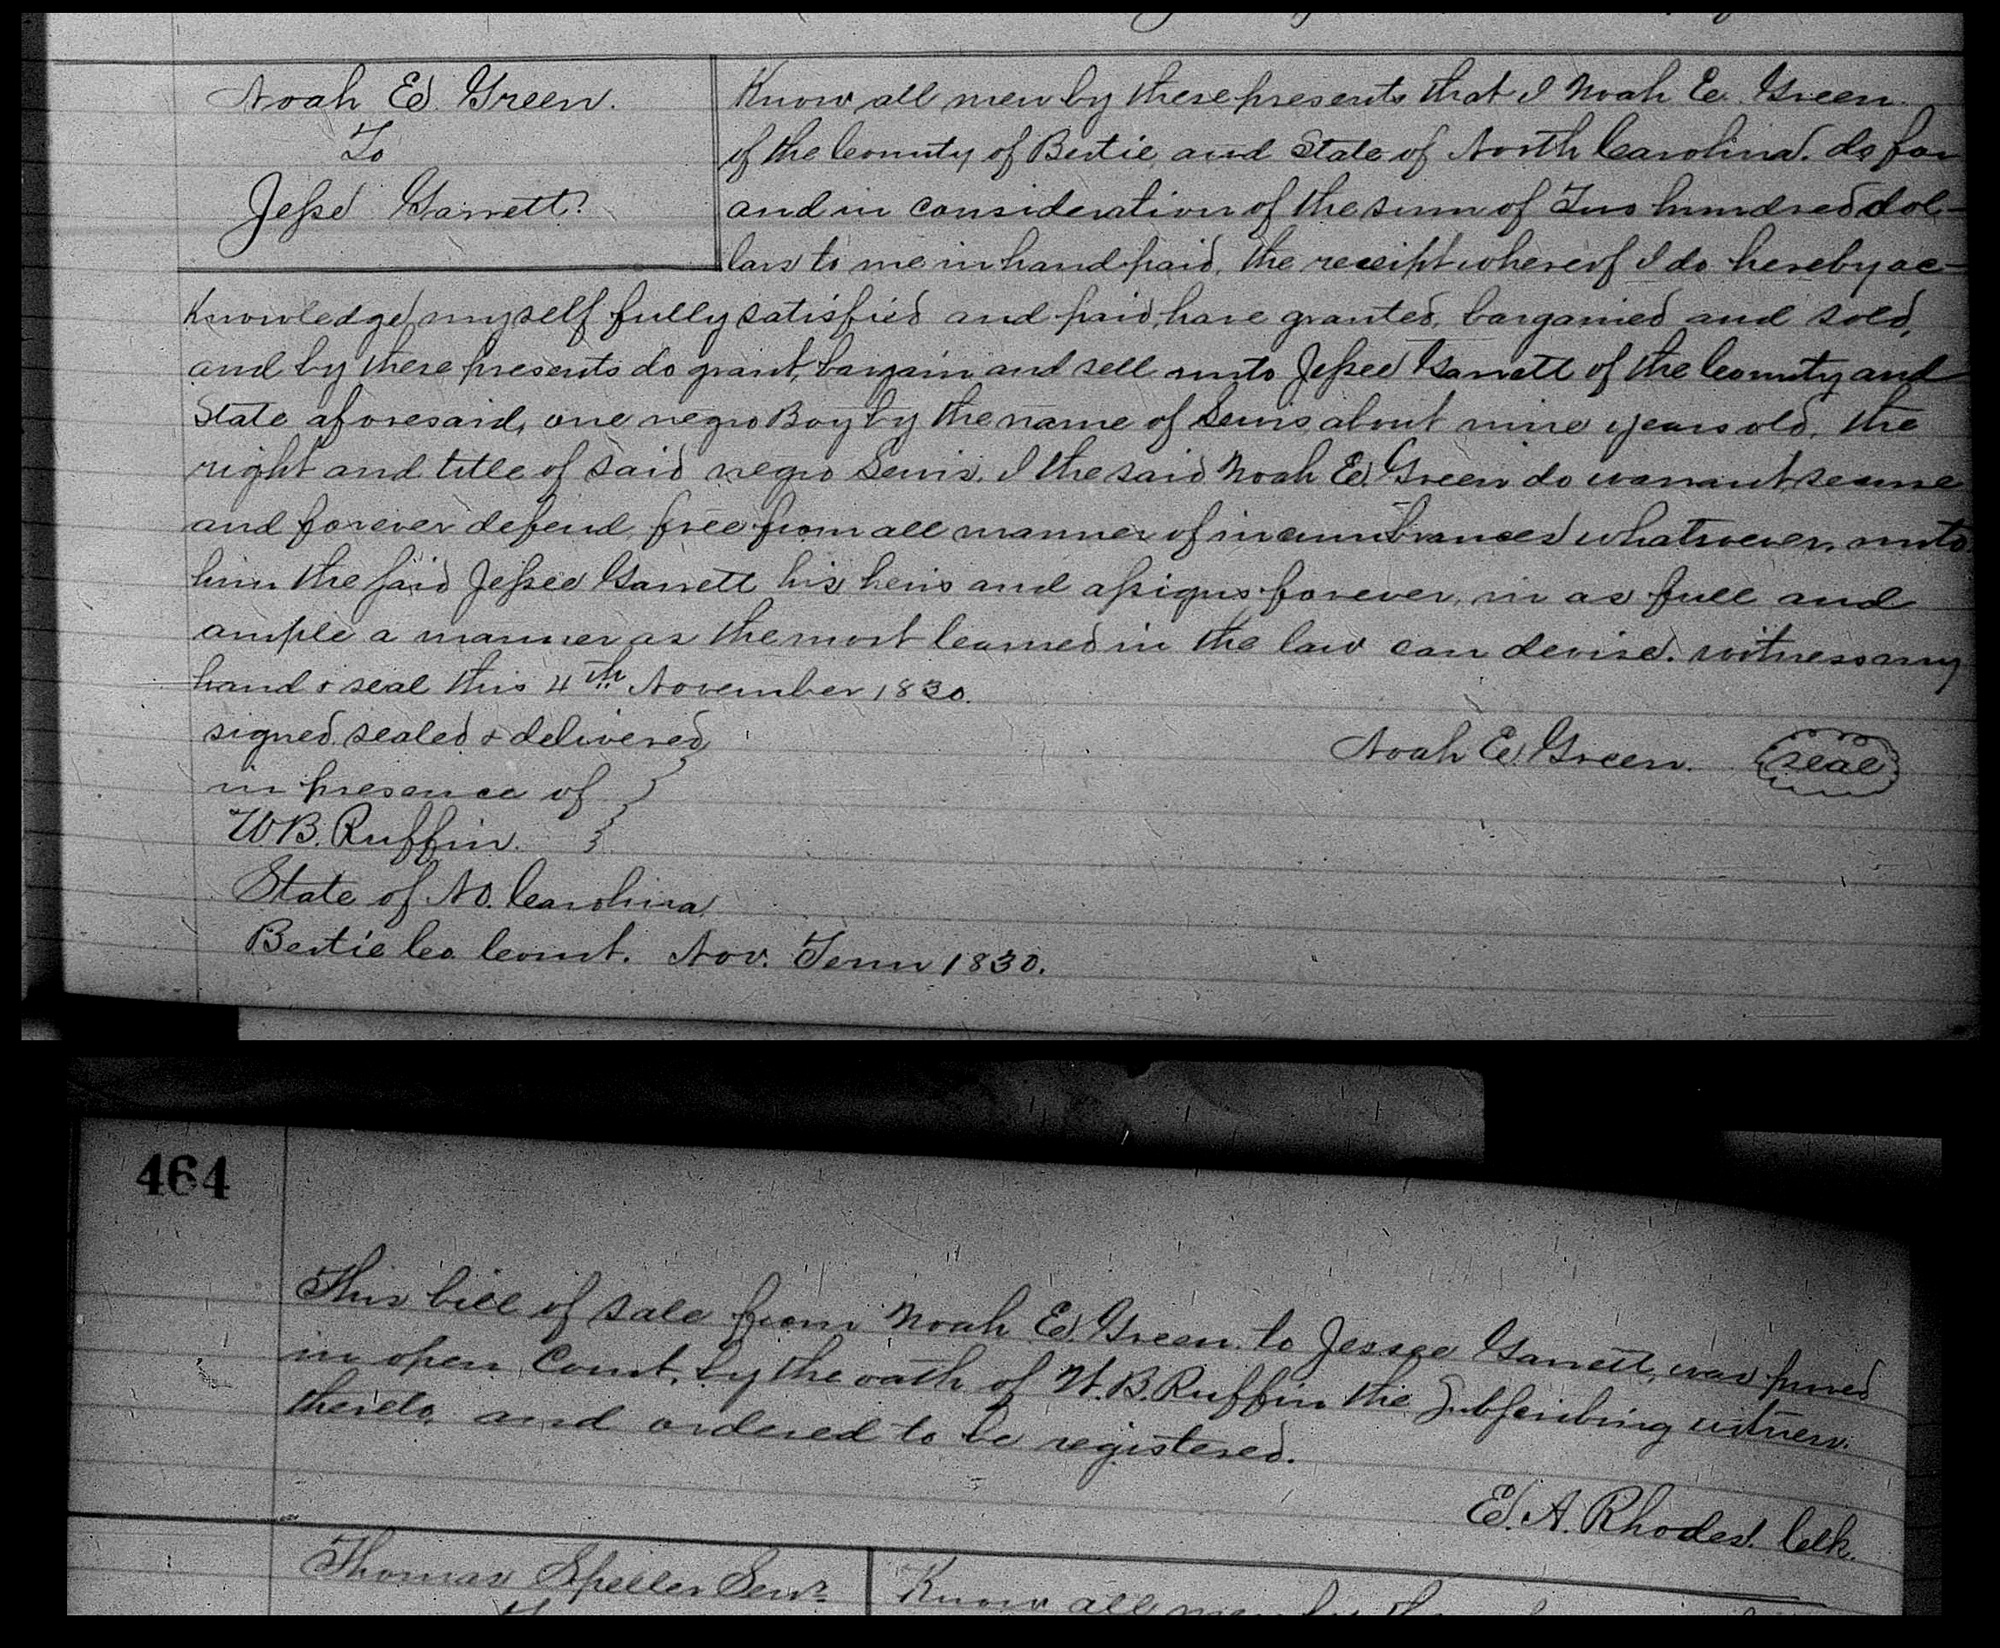 Noah Ed. Green.
To
Jesse Garrett.
Know all men by these presents that I Noah Ed. Green
of the County of Bertie and State of North Carolina. do for
and in consideration of the sum of Two hundred dol-
lars to me in hand paid, the receipt whereof I do hereby ac-
knowledge, myself fully satisfied and paid, have granted, bargained and sold,
and by these presents do grant, bargain and sell unto Jessee Garrett of the County and
State aforesaid, one negro Boy by the name of Lewis about nine years old, the
right and title of said negro Lewis, I the said Noah Ed. Green do warrant, secure
and forever defend, free from all manner of incumbrances whatsoever, unto
him the said Jessee Garrett his heirs and assigns forever, in as full and
ample a manner as the most learned in the law can devise. witness my
hand & seal this 4th November 1830.
signed sealed & delivered
in presence of
W B. Ruffin.
Noah Ed. Green. seal
State of No. Carolina
Bertie Co. Court. Nov. Term 1830.
464
This bill of sale from Noah Ed. Green to Jessee Garrett, was proved
in open Court, by the oath of W. B. Ruffin the Subscribing witness
thereto and ordered to be registered.
E. A. Rhodes. Clk.
Thomas Speller Senr.
Know all men by